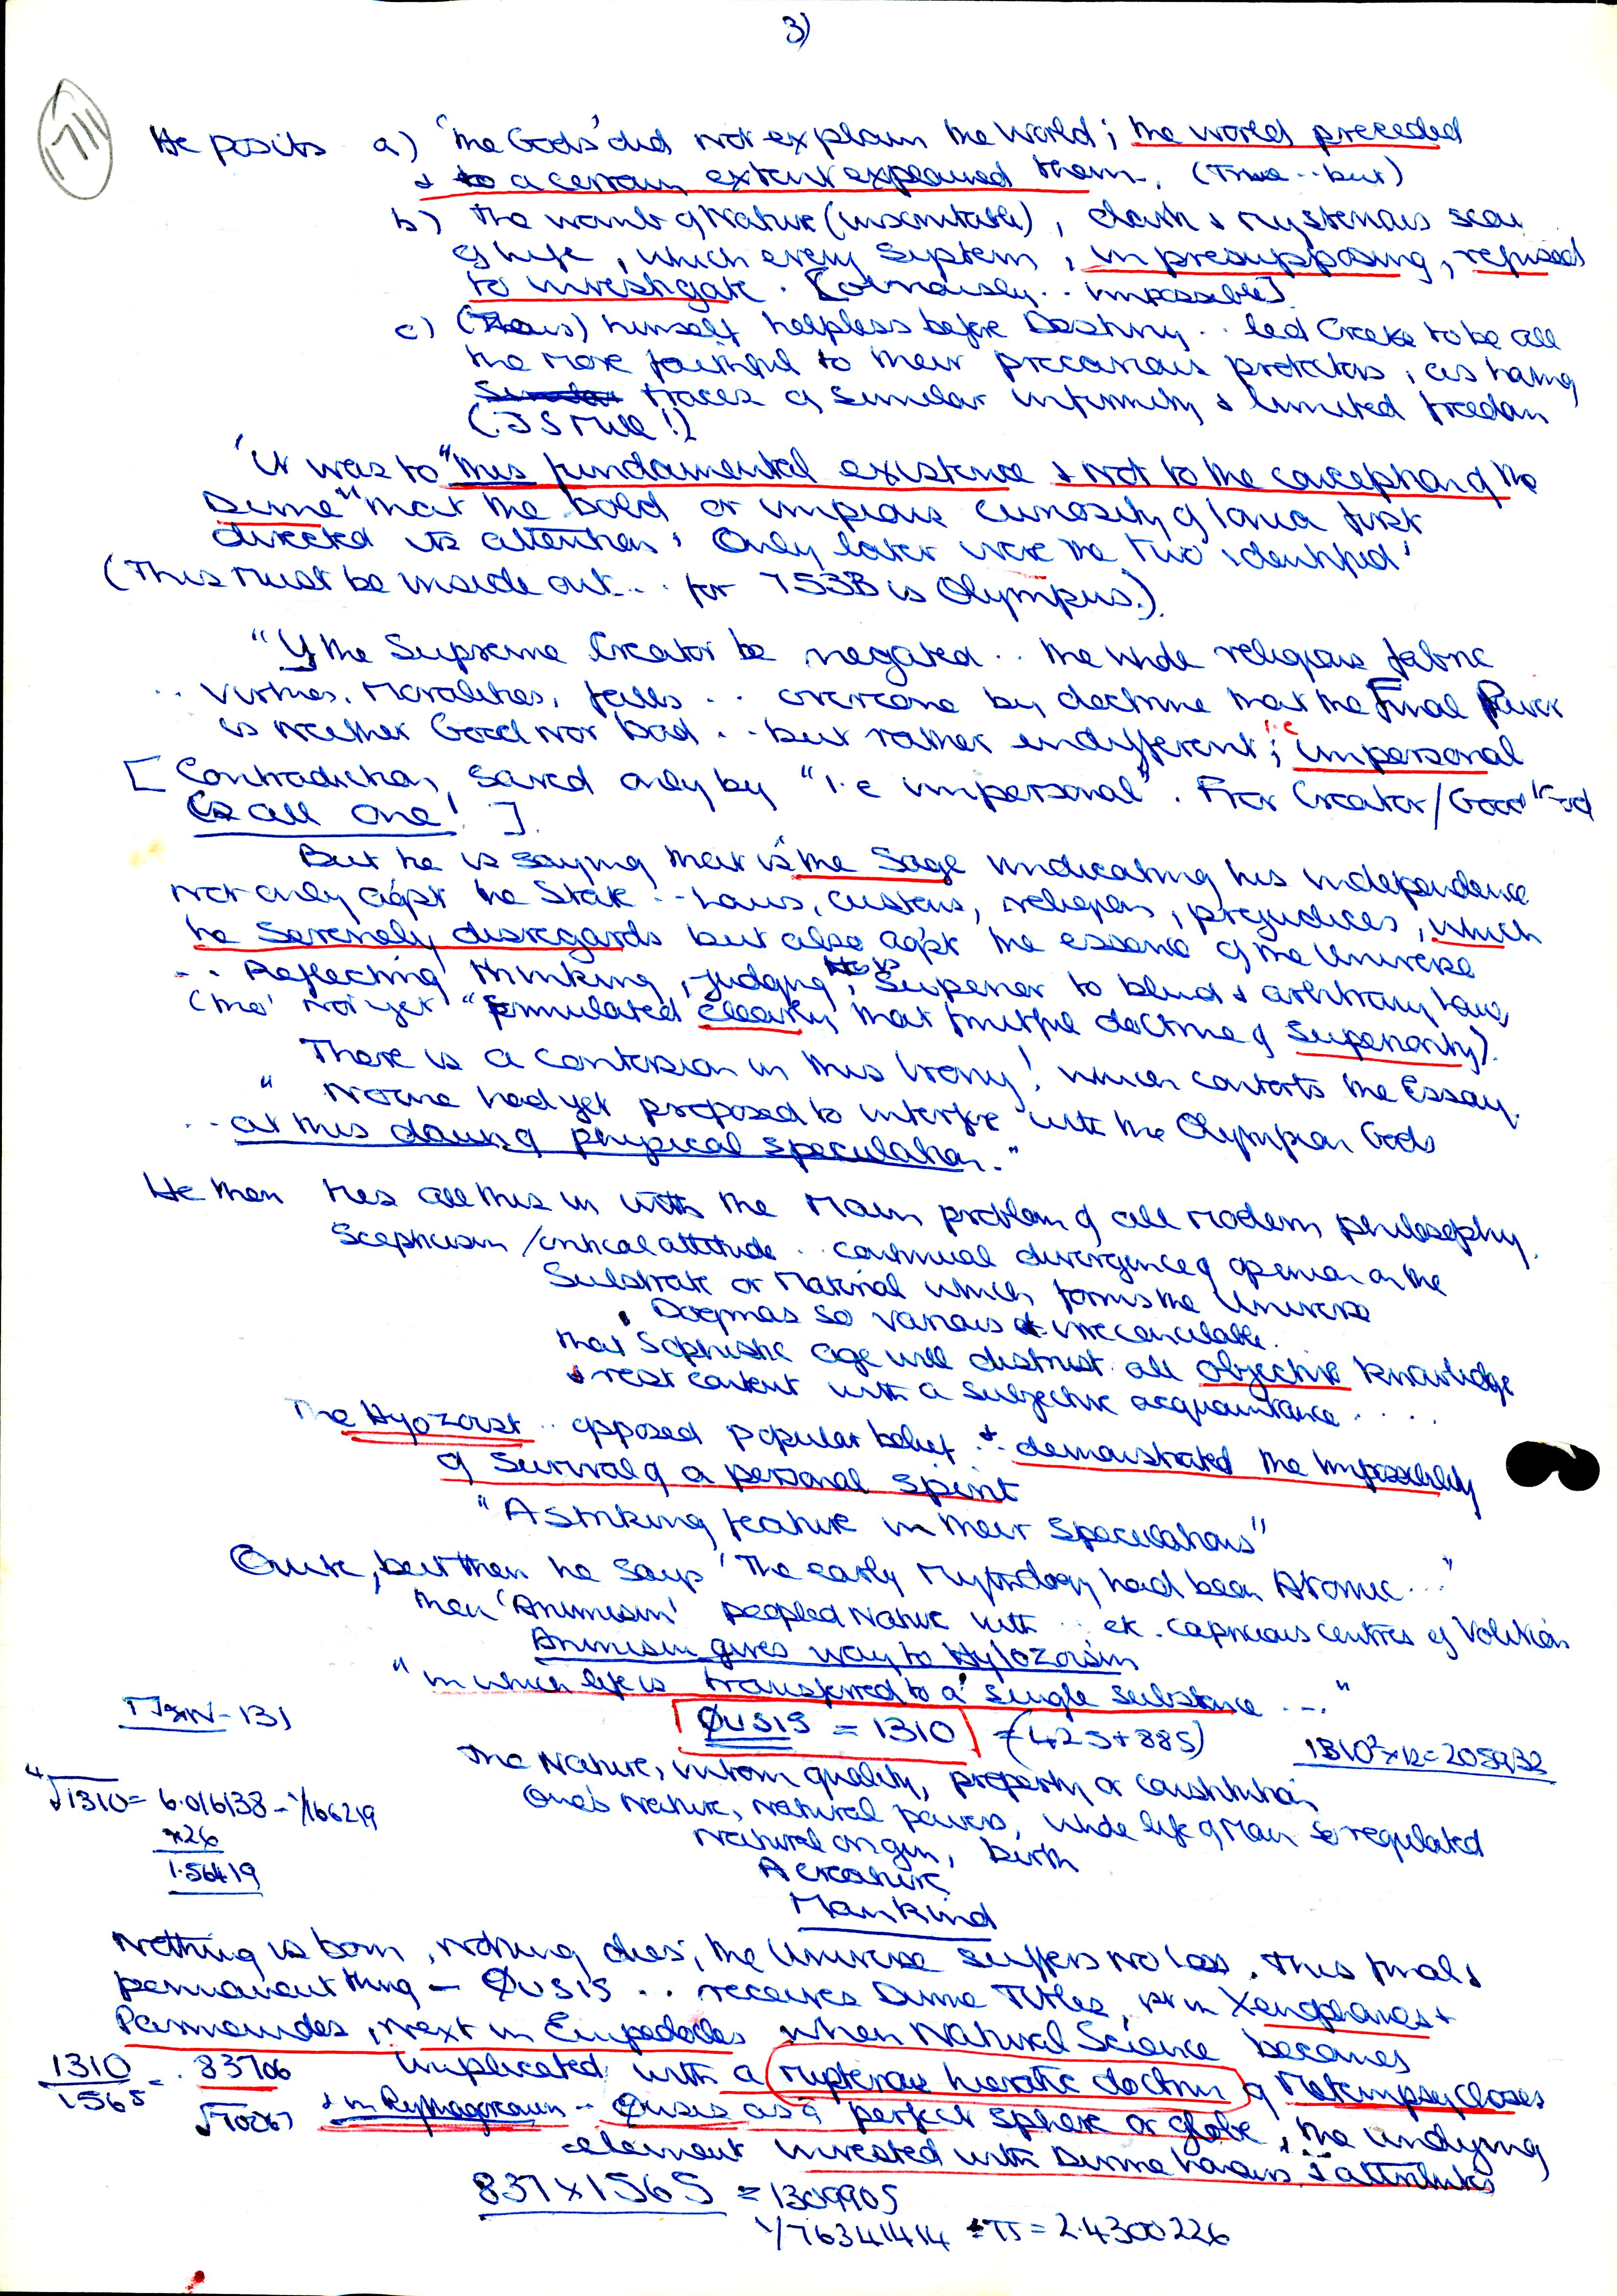 3)
711
He posits a) 'The Gods' did not explain the World; the world preceded
& to a certain extent explained them. (True .. but)
b) The womb of Nature (inscrutable), dark & mysterious seat
of life, which every system, in presupposing, refused
to investigate. [obviously .. impossible]
c) (Zeus) himself helpless before Destiny .. led Greeks to be all
the more faithful to their precarious protectors, as having
traces of similar infirmity & limited freedom
(JS Mill!)
'It was to "this fundamental existence & not to the conception of the
Divine" that the bold or impious curiosity of Ionia first
directed its attention. Only later were the two identified'
(This must be inside out ... for 753B is Olympus.)
"If the Supreme Creator be negated .. the whole religious fabric
.. Virtues, Moralities, falls .. overcome by doctrine that the Final Power
is neither Good nor Bad .. but rather indifferent; i.e impersonal
[Contradiction, saved only by "i.e impersonal". For Creator/Good God
is all one! ].
But he is saying that is "the Sage vindicating his independence
not only agst the State .. Laws, customs, religions, prejudices, which
he serenely disregards but also agst the essence of the Universe
.. Reflecting thinking, judging, Superior to blind & arbitrary Laws
(tho' not yet "formulated clearly that fruitful doctrine of Superiority).
There is a contorsion in this Irony! which contorts the Essay.
"No one had yet proposed to interfere with the Olympian Gods
.. at this dawn of physical speculation."
He then ties all this in with the main problem of all modern philosophy.
Scepticism/critical attitude .. continual divergence of opinion on the
Substrate or Material which forms the Universe
Dogmas so various & irreconcilable.
that Sophistic age will distrust all objective knowledge
& rest content with a subjective acquaintance ....
The Hyozoist .. opposed popular belief .. & demonstrated the impossibility
of survival of a personal spirit
"A striking feature in their speculations"
Quite, but then he says 'The early Mythology had been Atomic ..."
then 'Animism' peopled Nature with .. etc. capricious centres of Volition
Animism gives way to Hylozoism
"in which life is transferred to a single substance ...."
- 131
ØUSIS = 1310 = (425+885)
1310²×12=205932
The Nature, inborn quality, property or constitution
One's Nature, natural powers, whole life of Man so regulated
Natural origin, birth
A Creature
Mankind
⁴√1310 = 6.016138 - 1/166219
×26
1.56419
Nothing is born, nothing dies; the Universe suffers no loss. This final &
permanent thing - ØUSIS .. receives Divine Titles, 1st in Xenophanes &
Parmenides, next in Empedocles when Natural Science becomes
implicated with a mysterious hieratic doctrine of Metempsychoses
1310/1565 = .83706
& in Pythagorean - Øusis as a perfect sphere or globe, the undying
element invested with Divine honours & attributes
837×1565 = 1309905
1/76341414 ÷π = 2.4300226